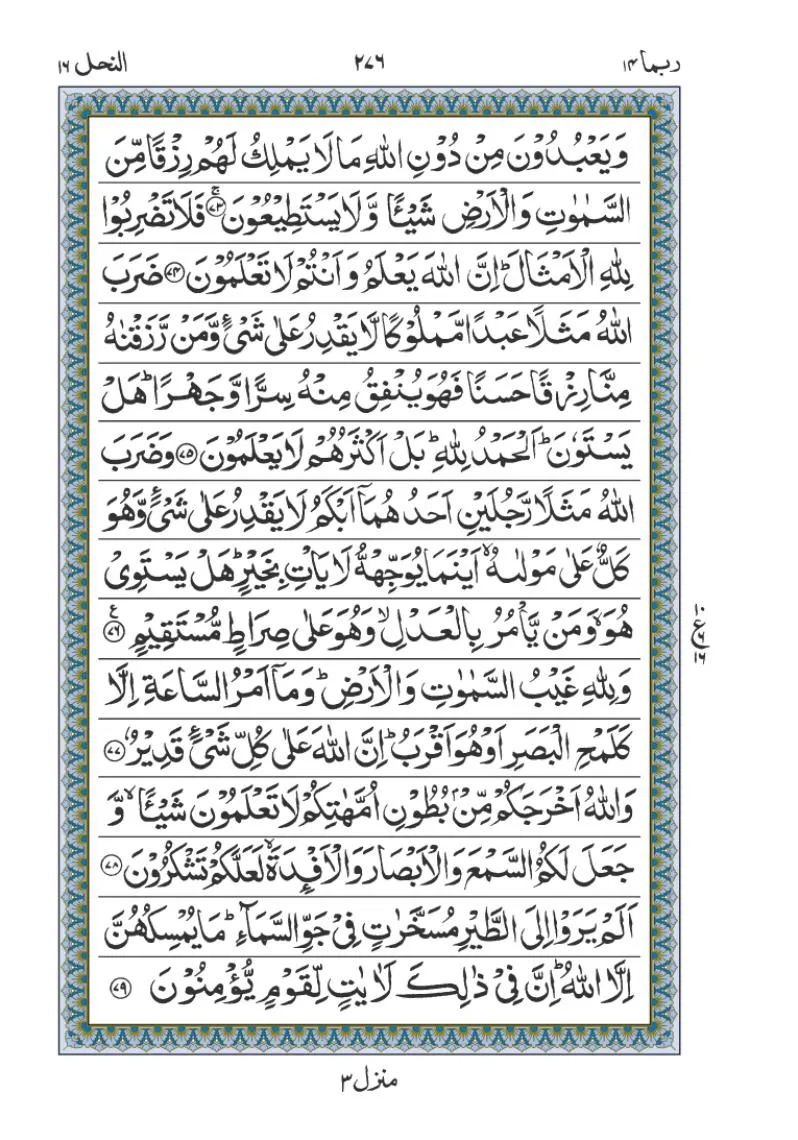 ربما ١٤ ٢٧٦ النحل ١٦
وَ يَعْبُدُوْنَ مِنْ دُوْنِ اللّٰهِ مَا لَا يَمْلِكُ لَهُمْ رِزْقًا مِّنَ
السَّمٰوٰتِ وَ الْاَرْضِ شَيْـًٔا وَّ لَا يَسْتَطِيْعُوْنَ ۚ﴿۷۳﴾ فَلَا تَضْرِبُوْا
لِلّٰهِ الْاَمْثَالَ ؕ اِنَّ اللّٰهَ يَعْلَمُ وَ اَنْتُمْ لَا تَعْلَمُوْنَ ﴿۷۴﴾ ضَرَبَ
اللّٰهُ مَثَلًا عَبْدًا مَّمْلُوْكًا لَّا يَقْدِرُ عَلٰى شَيْءٍ وَّ مَنْ رَّزَقْنٰهُ
مِنَّا رِزْقًا حَسَنًا فَهُوَ يُنْفِقُ مِنْهُ سِرًّا وَّ جَهْرًا ؕ هَلْ
يَسْتَوٗنَ ؕ اَلْحَمْدُ لِلّٰهِ ؕ بَلْ اَكْثَرُهُمْ لَا يَعْلَمُوْنَ ﴿۷۵﴾ وَ ضَرَبَ
اللّٰهُ مَثَلًا رَّجُلَيْنِ اَحَدُهُمَاۤ اَبْكَمُ لَا يَقْدِرُ عَلٰى شَيْءٍ وَّ هُوَ
كَلٌّ عَلٰى مَوْلٰىهُ ۙ اَيْنَمَا يُوَجِّهْهُّ لَا يَاْتِ بِخَيْرٍ ؕ هَلْ يَسْتَوِيْ
هُوَ ۙ وَ مَنْ يَّاْمُرُ بِالْعَدْلِ ۙ وَ هُوَ عَلٰى صِرَاطٍ مُّسْتَقِيْمٍ ﴿۷۶﴾ ع
١٠ ع ٦ ١٦
وَ لِلّٰهِ غَيْبُ السَّمٰوٰتِ وَ الْاَرْضِ ؕ وَ مَاۤ اَمْرُ السَّاعَةِ اِلَّا
كَلَمْحِ الْبَصَرِ اَوْ هُوَ اَقْرَبُ ؕ اِنَّ اللّٰهَ عَلٰى كُلِّ شَيْءٍ قَدِيْرٌ ﴿۷۷﴾
وَ اللّٰهُ اَخْرَجَكُمْ مِّنْۢ بُطُوْنِ اُمَّهٰتِكُمْ لَا تَعْلَمُوْنَ شَيْـًٔا ۙ وَّ
جَعَلَ لَكُمُ السَّمْعَ وَ الْاَبْصَارَ وَ الْاَفْـِٕدَةَ ۙ لَعَلَّكُمْ تَشْكُرُوْنَ ﴿۷۸﴾
اَلَمْ يَرَوْا اِلَى الطَّيْرِ مُسَخَّرٰتٍ فِيْ جَوِّ السَّمَآءِ ؕ مَا يُمْسِكُهُنَّ
اِلَّا اللّٰهُ ؕ اِنَّ فِيْ ذٰلِكَ لَاٰيٰتٍ لِّقَوْمٍ يُّؤْمِنُوْنَ ﴿۷۹﴾
منزل ٣